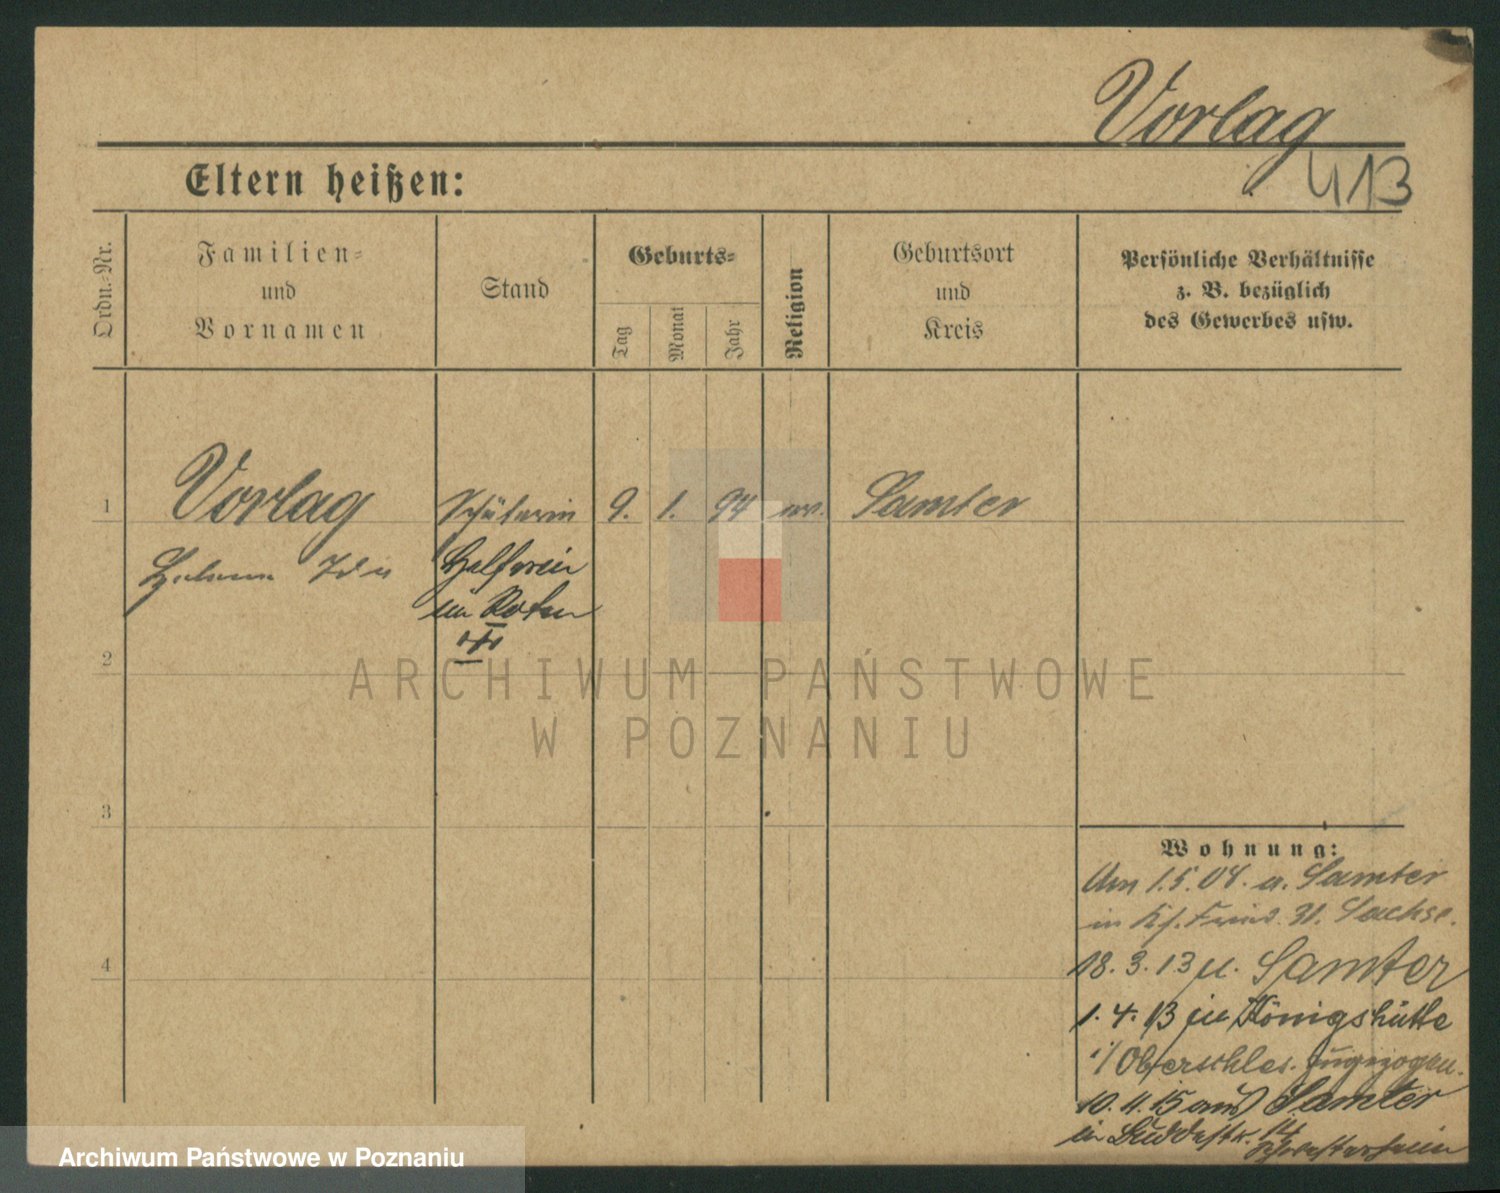 Vorlag
413
Eltern heißen:
Ordn.-Nr.
Familien-
und
Vornamen
Stand
Geburts-
Tag
Monat
Jahr
Religion
Geburtsort
und
Kreis
Persönliche Verhältnisse
z. B. bezüglich
des Gewerbes usw.
1 Vorlag Schülerin 9. 1. 94 ev. Samter
Helene Ida Helferin
im Roten
+
2
3
4
Wohnung:
Am 1.5.04. a. Samter
in 31. Sachse.
18. 3. 13 n. Samter
1. 4. 13 in Königshütte
i/Oberschles. zugezogen.
10. 4. 15 aus Samter
in Buddestr. 14
Schwesternheim
ARCHIWUM PAŃSTWOWE
W POZNANIU
Archiwum Państwowe w Poznaniu